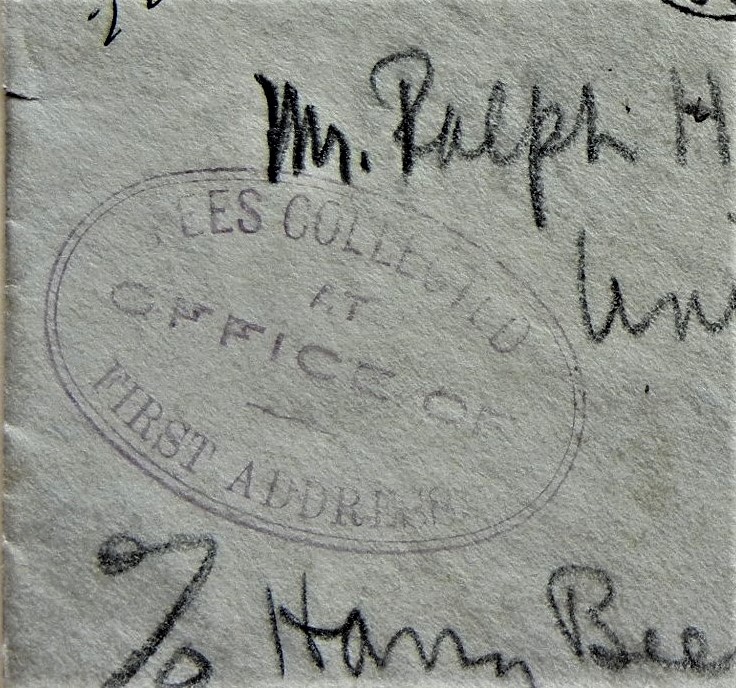 Mr. Ralph H
EES COLLECTED
AT
OFFICE OF
FIRST ADDRESS
Uni
c/o Harry Bee